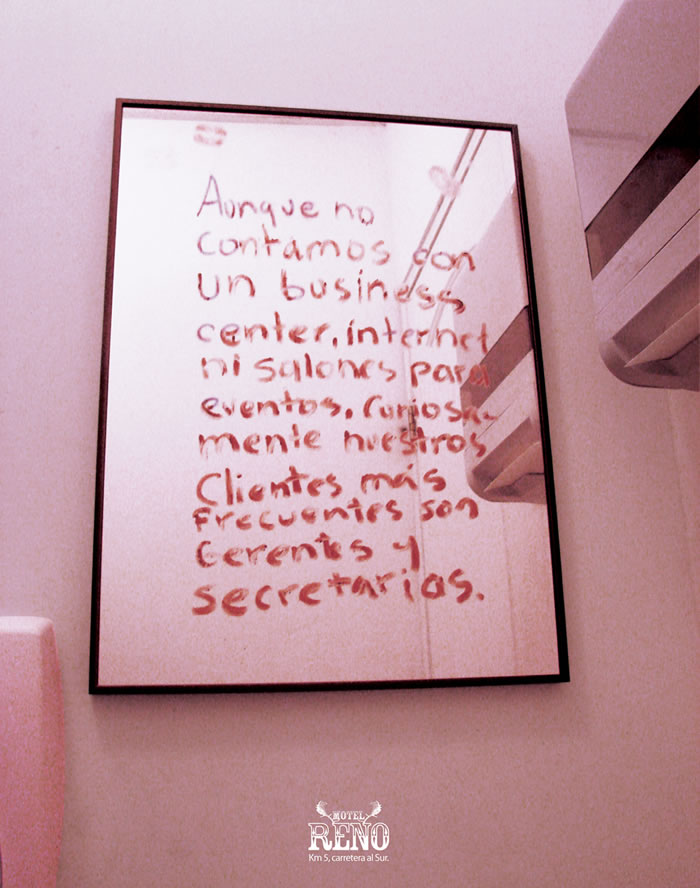 Aunque no
contamos con
un business
center, internet
ni salones para
eventos, curiosa-
mente nuestros
Clientes más
Frecuentes son
Gerentes y
secretarias.
MOTEL
RENO
Km 5, carretera al Sur.